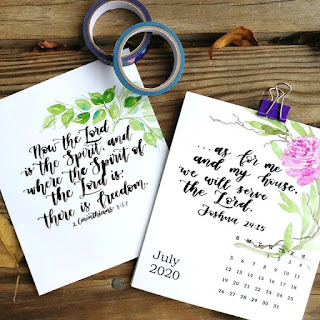 Now the Lord
is the Spirit, and
where the Spirit of
the Lord is,
there is freedom.
2 Corinthians 3:17
... as for me
and my house,
we will serve
the Lord.
Joshua 24:15
July
2020
S M T W T F S
1 2 3 4
5 6 7 8 9 10 11
12 13 14 15 16 17 18
19 20 21 22 23 24 25
26 27 28 29 30 31